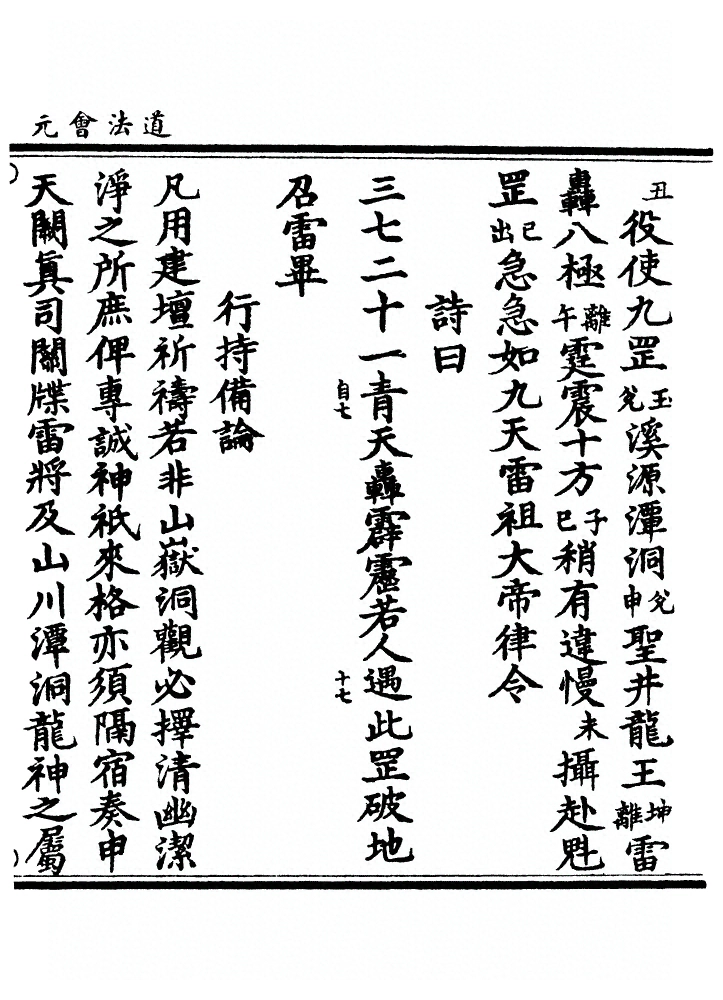 道法會元
丑役使九罡玉兊溪源潭洞兊申聖井龍王坤離雷
轟八極離午霆震十方子巳稍有違慢未攝赴魁
罡已出急急如九天雷祖大帝律令
詩曰
三七二十一青天轟霹靂若人遇此罡破地
自七
十七
召雷畢
行持備論
凡用建壇祈禱若非山嶽洞觀必擇清幽潔
淨之所庶俾專誠神祇來格亦須隔宿奏申
天闕眞司關牒雷將及山川潭洞龍神之屬